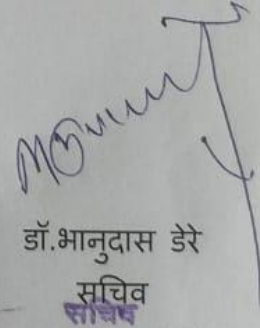 डॉ.भानुदास डेरे
सचिव
सचिव